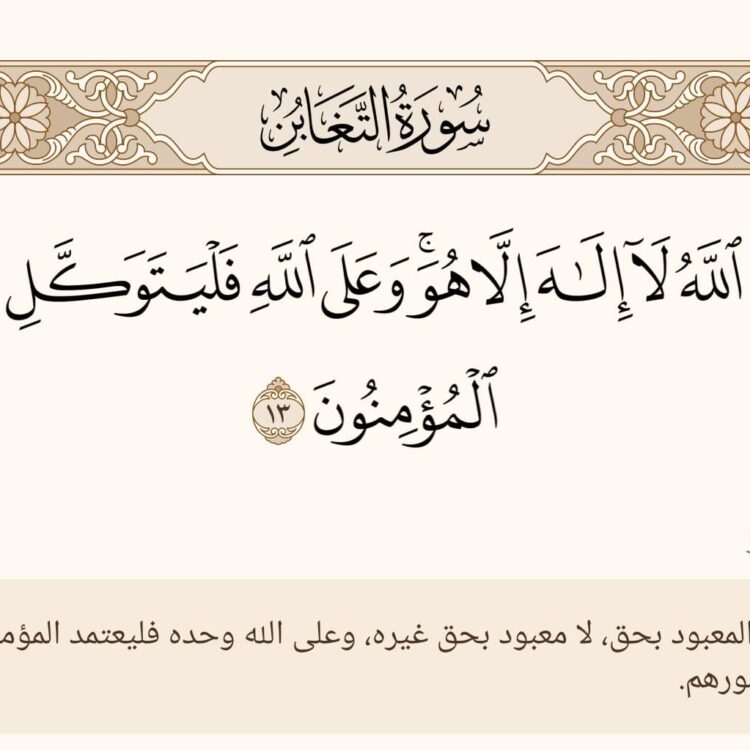 سُورَةُ التَّغَابُنِ
ٱللَّهُ لَآ إِلَـٰهَ إِلَّا هُوَۚ وَعَلَى ٱللَّهِ فَلۡيَتَوَكَّلِ
ٱلۡمُؤۡمِنُونَ ١٣
المعبود بحق، لا معبود بحق غيره، وعلى الله وحده فليعتمد